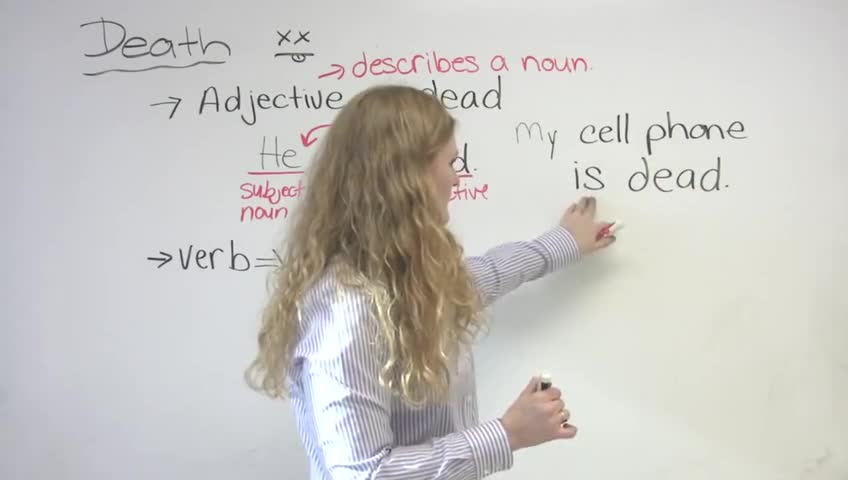 Death xx
→ describes a noun.
→ Adjective dead
He
subject
noun
my cell phone
is dead.
→ verb ⇒